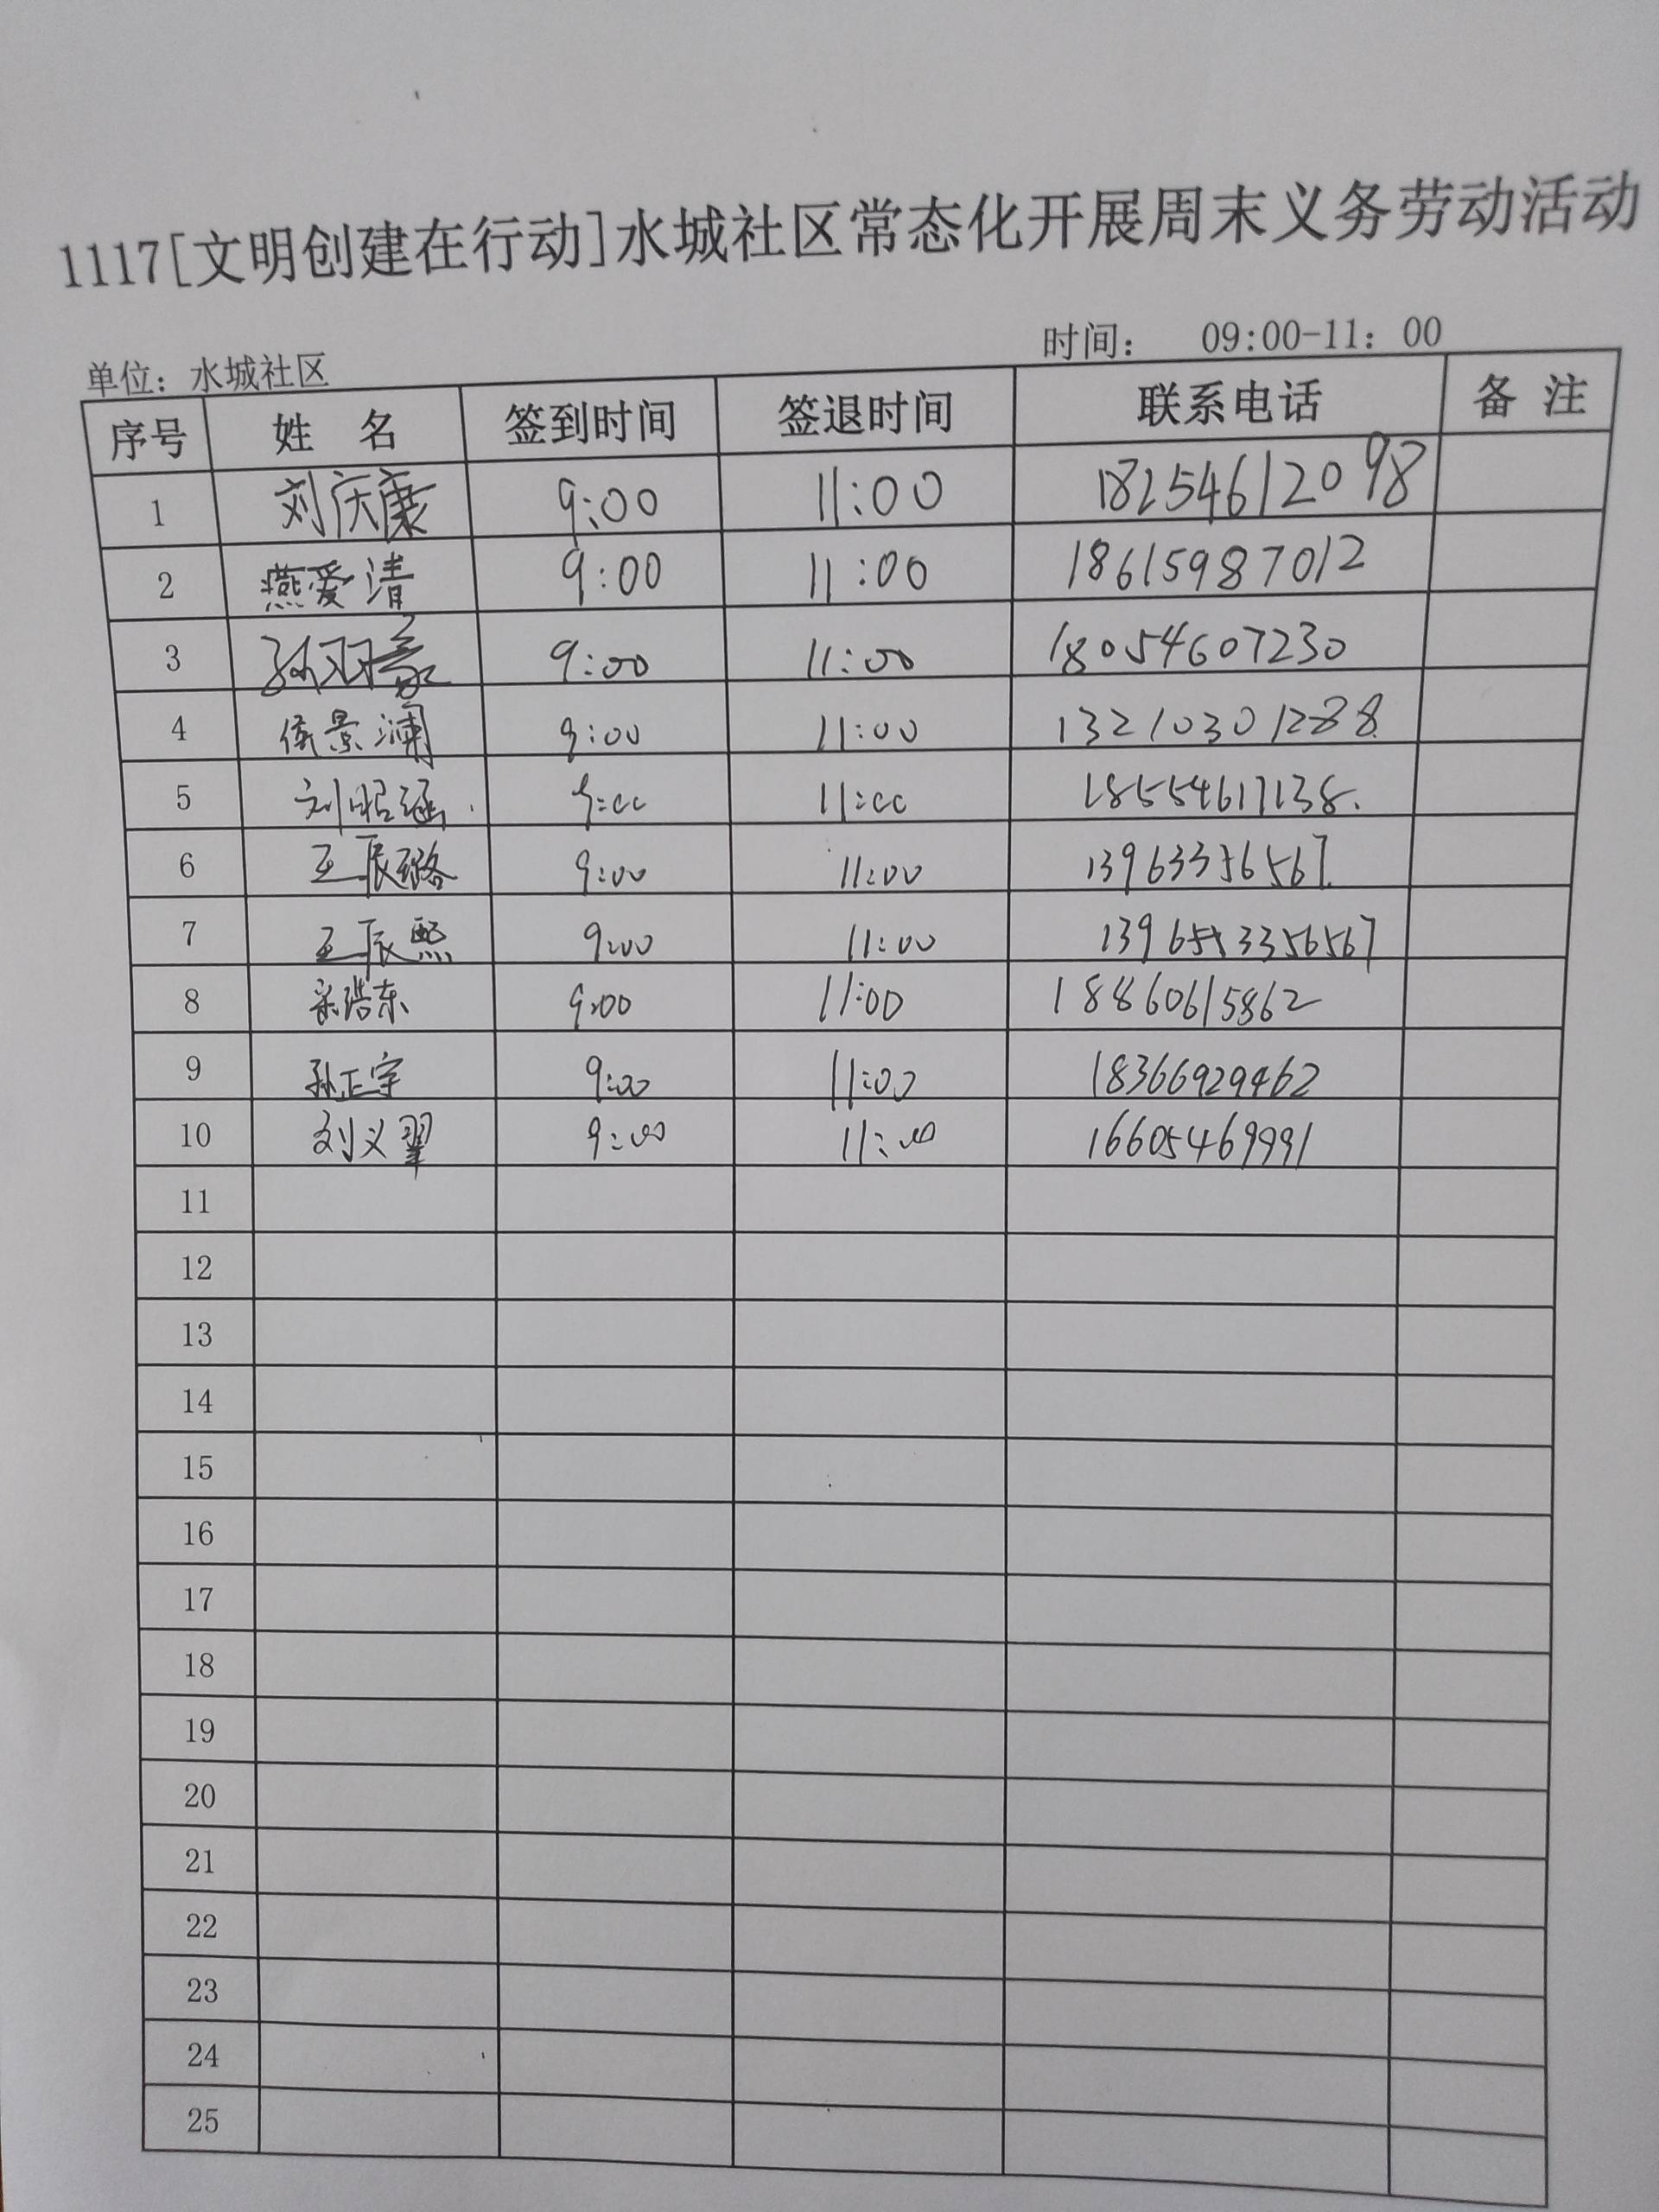 1117[文明创建在行动]水城社区常态化开展周末义务劳动活动
单位：水城社区 时间： 09:00-11：00
序号 姓 名 签到时间 签退时间 联系电话 备 注
1 刘庆康 9:00 11:00 18254612098
2 燕爱清 9:00 11:00 18615987012
3 孙羽 9:00 11:00 18054607230
4 侯景澜 9:00 11:00 13210301288
5 刘昭涵 9:00 11:00 18554617138.
6 王辰璐 9:00 11:00 13963356567.
7 王辰熙 9:00 11:00
8 浩东 9:00 11:00 18860615862
9 孙正宇 9:00 11:00 18366929462
10 刘义翟 9:00 11:00 16605469991
11
12
13
14
15
16
17
18
19
20
21
22
23
24
25